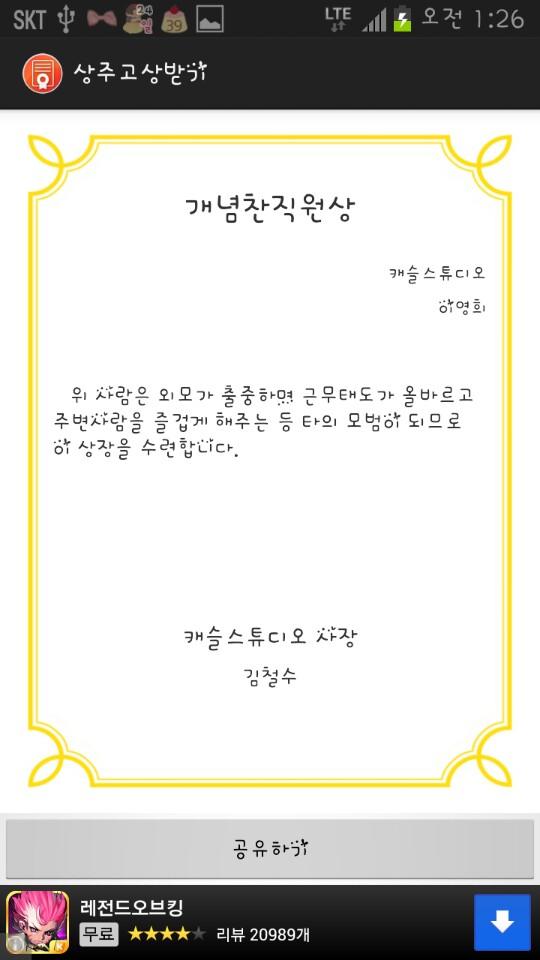 SKT 24일 39 LTE 오전 1:26
상주고상받기
개념찬직원상
캐슬스튜디오
이영희
위 사람은 외모가 출중하며 근무태도가 올바르고
주변사람을 즐겁게 해주는 등 타의 모범이 되므로
이 상장을 수련합니다.
캐슬스튜디오 사장
김철수
공유하기
레전드오브킹
무료 ★★★★★ 리뷰 20989개